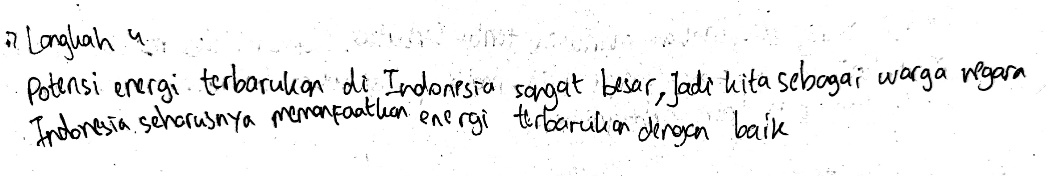 Langkah 4
Potensi energi terbarukan di Indonesia sangat besar, Jadi kita sebagai warga negara
Indonesia seharusnya memanfaatkan energi terbarukan dengan baik